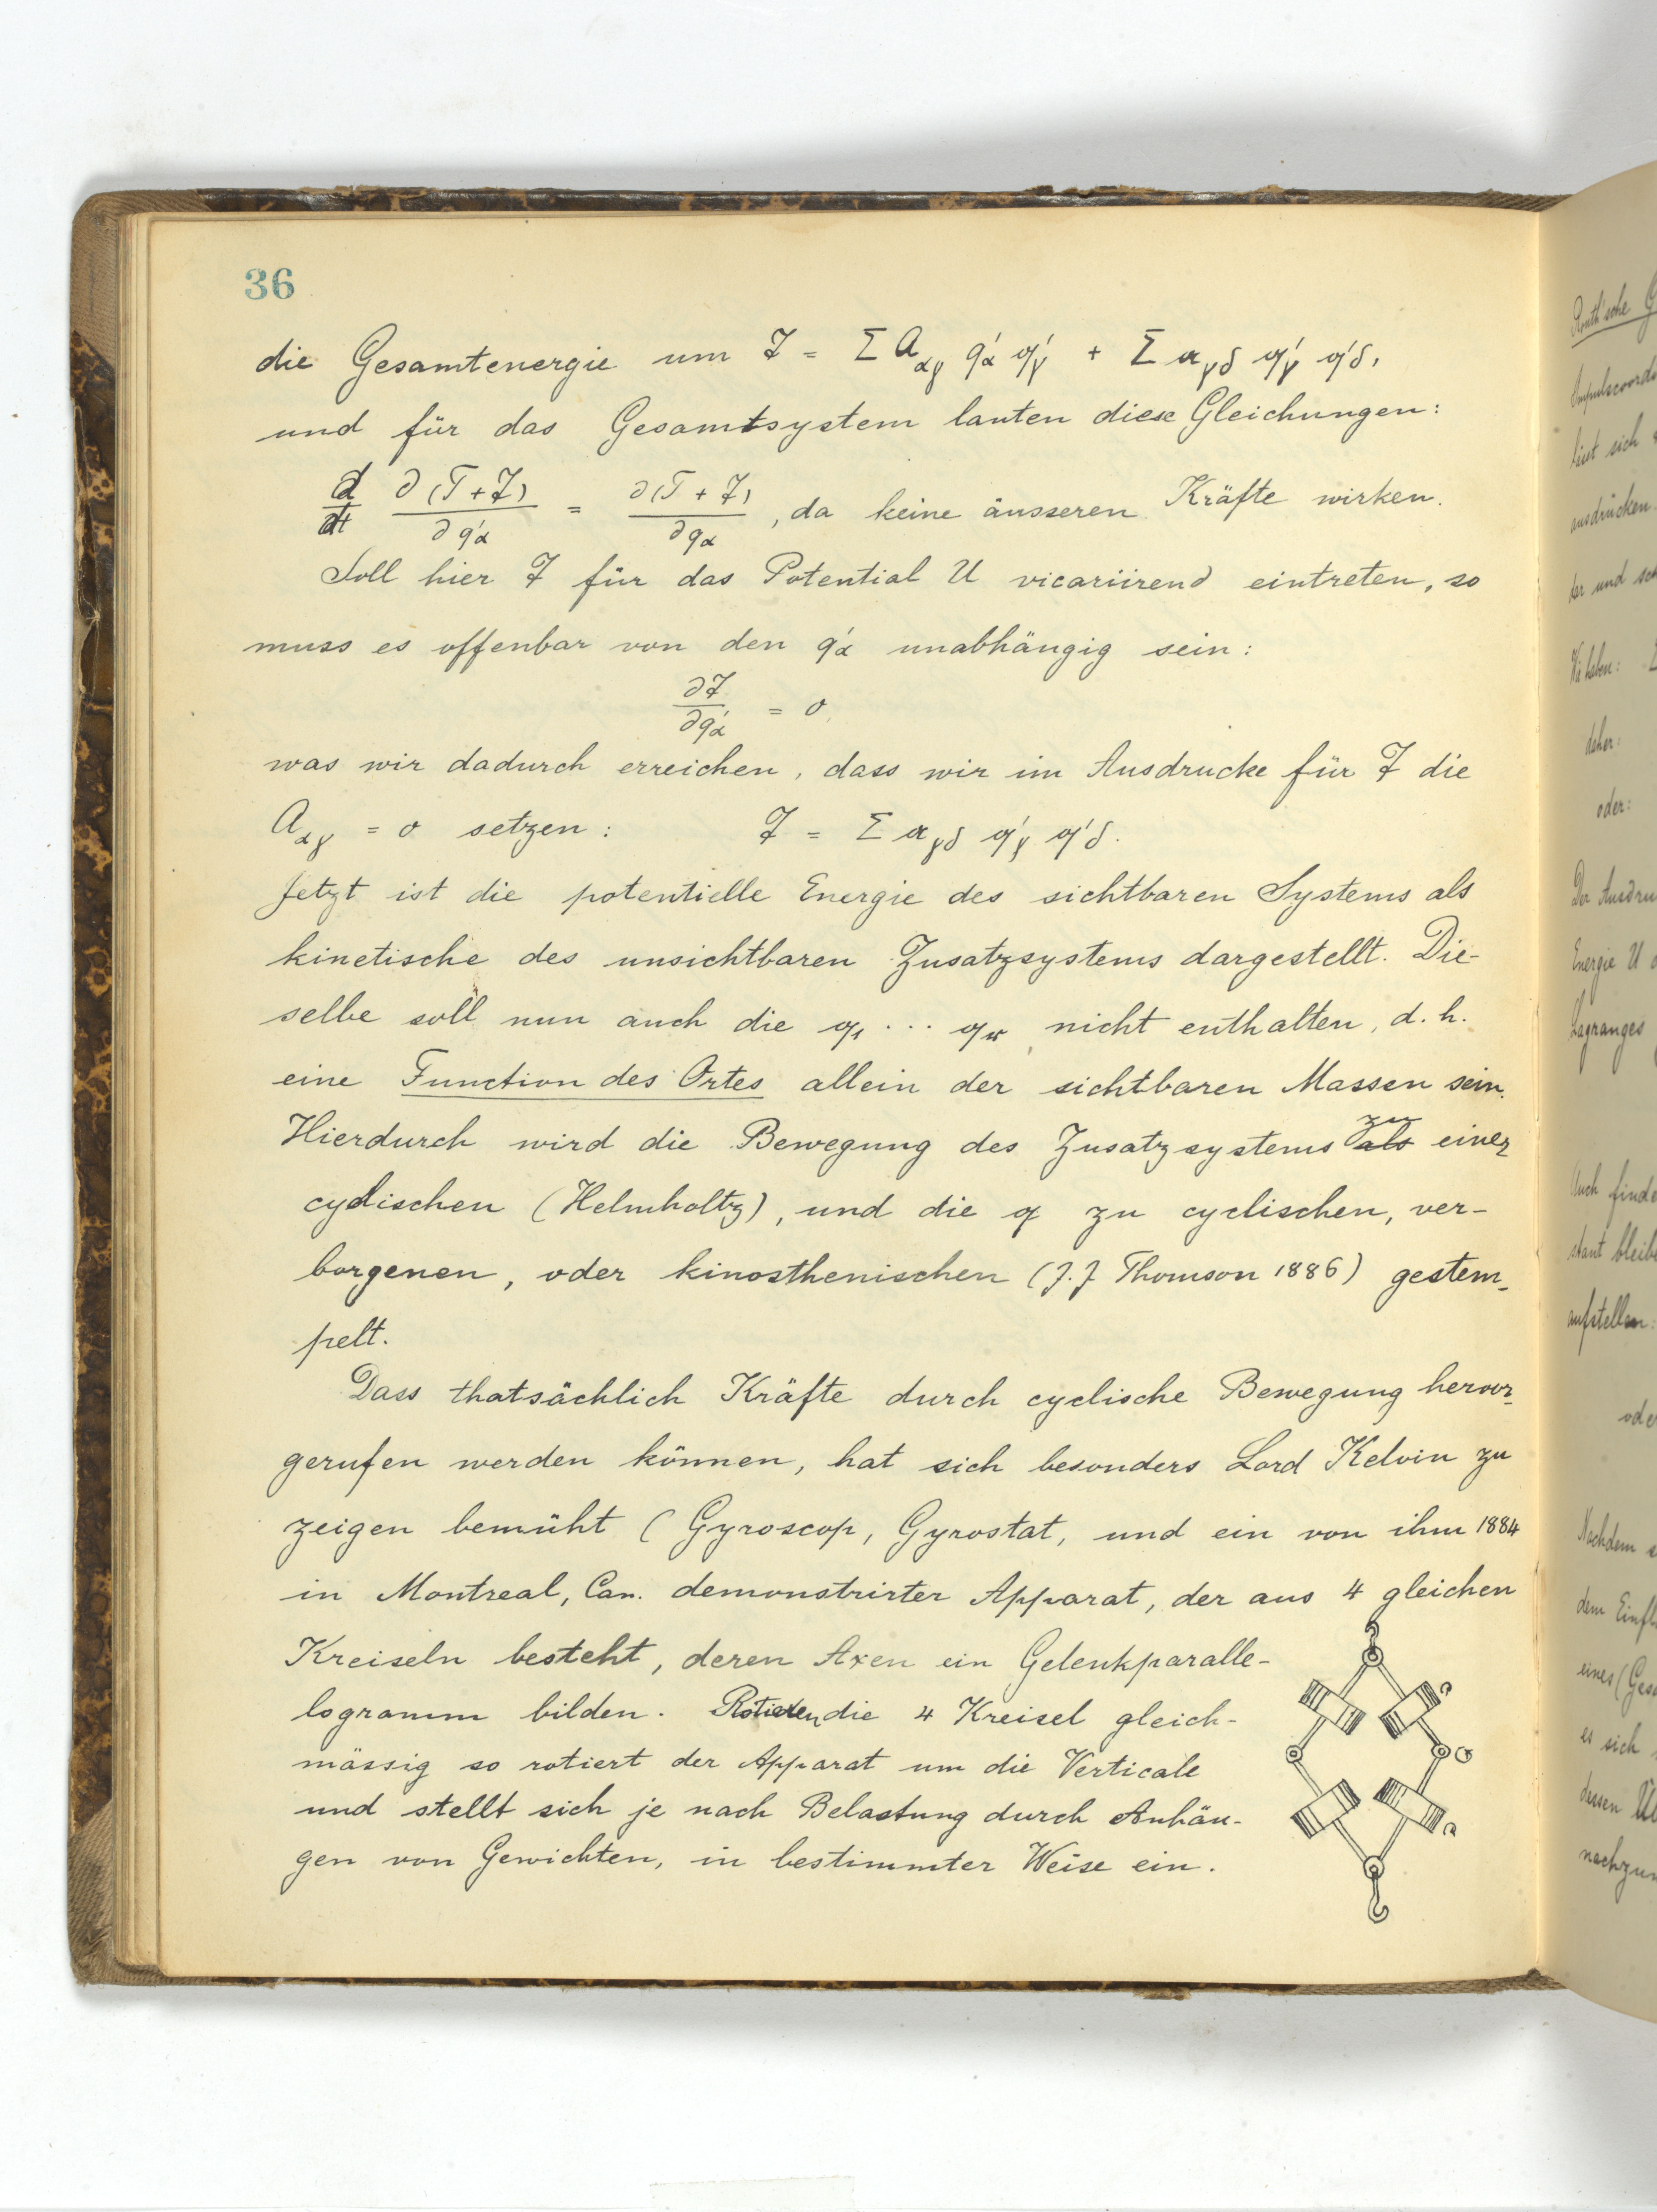 36
die Gesamtenergie um 𝔗 = Σ 𝔄αγ q′α 𝔮′γ + Σ 𝔞γδ 𝔮′γ 𝔮′δ,
und für das Gesamtsystem lauten diese Gleichungen:
d/dt ∂(T+𝔗)/∂q′α = ∂(T+𝔗)/∂qα, da keine äusseren Kräfte wirken.
Soll hier 𝔗 für das Potential U vicariirend eintreten, so
muss es offenbar von den q′α unabhängig sein:
∂𝔗/∂q′α = 0,
was wir dadurch erreichen, dass wir im Ausdrucke für 𝔗 die
𝔄αγ = 0 setzen: 𝔗 = Σ 𝔞γδ 𝔮′γ 𝔮′δ.
Jetzt ist die potentielle Energie des sichtbaren Systems als
kinetische des unsichtbaren Zusatzsystems dargestellt. Die-
selbe soll nun auch die 𝔮₁ ... 𝔮 nicht enthalten, d. h.
eine Function des Ortes allein der sichtbaren Massen sein.
Hierdurch wird die Bewegung des Zusatzsystems als zu einer
cyclischen (Helmholtz), und die 𝔮 zu cyclischen, ver-
borgenen, oder kinosthenischen (J. J Thomson 1886) gestem-
pelt.
Dass thatsächlich Kräfte durch cyclische Bewegung hervor-
gerufen werden können, hat sich besonders Lord Kelvin zu
zeigen bemüht (Gyroscop, Gyrostat, und ein von ihm 1884
in Montreal, Can. demonstrirter Apparat, der aus 4 gleichen
Kreiseln besteht, deren Axen ein Gelenkparalle-
logramm bilden. Rotieren die 4 Kreisel gleich-
mässig so rotiert der Apparat um die Verticale
und stellt sich je nach Belastung durch Anhän-
gen von Gewichten, in bestimmter Weise ein.
Routh'sche G
liest sich
ausdrücken
Wir haben:
daher:
oder:
Der Ausdru
Energie U
Lagranges
Auch finde
stant bleib
aufstellen:
ode
Nachdem
dem Einfl
eines (Ges
es sich
dessen